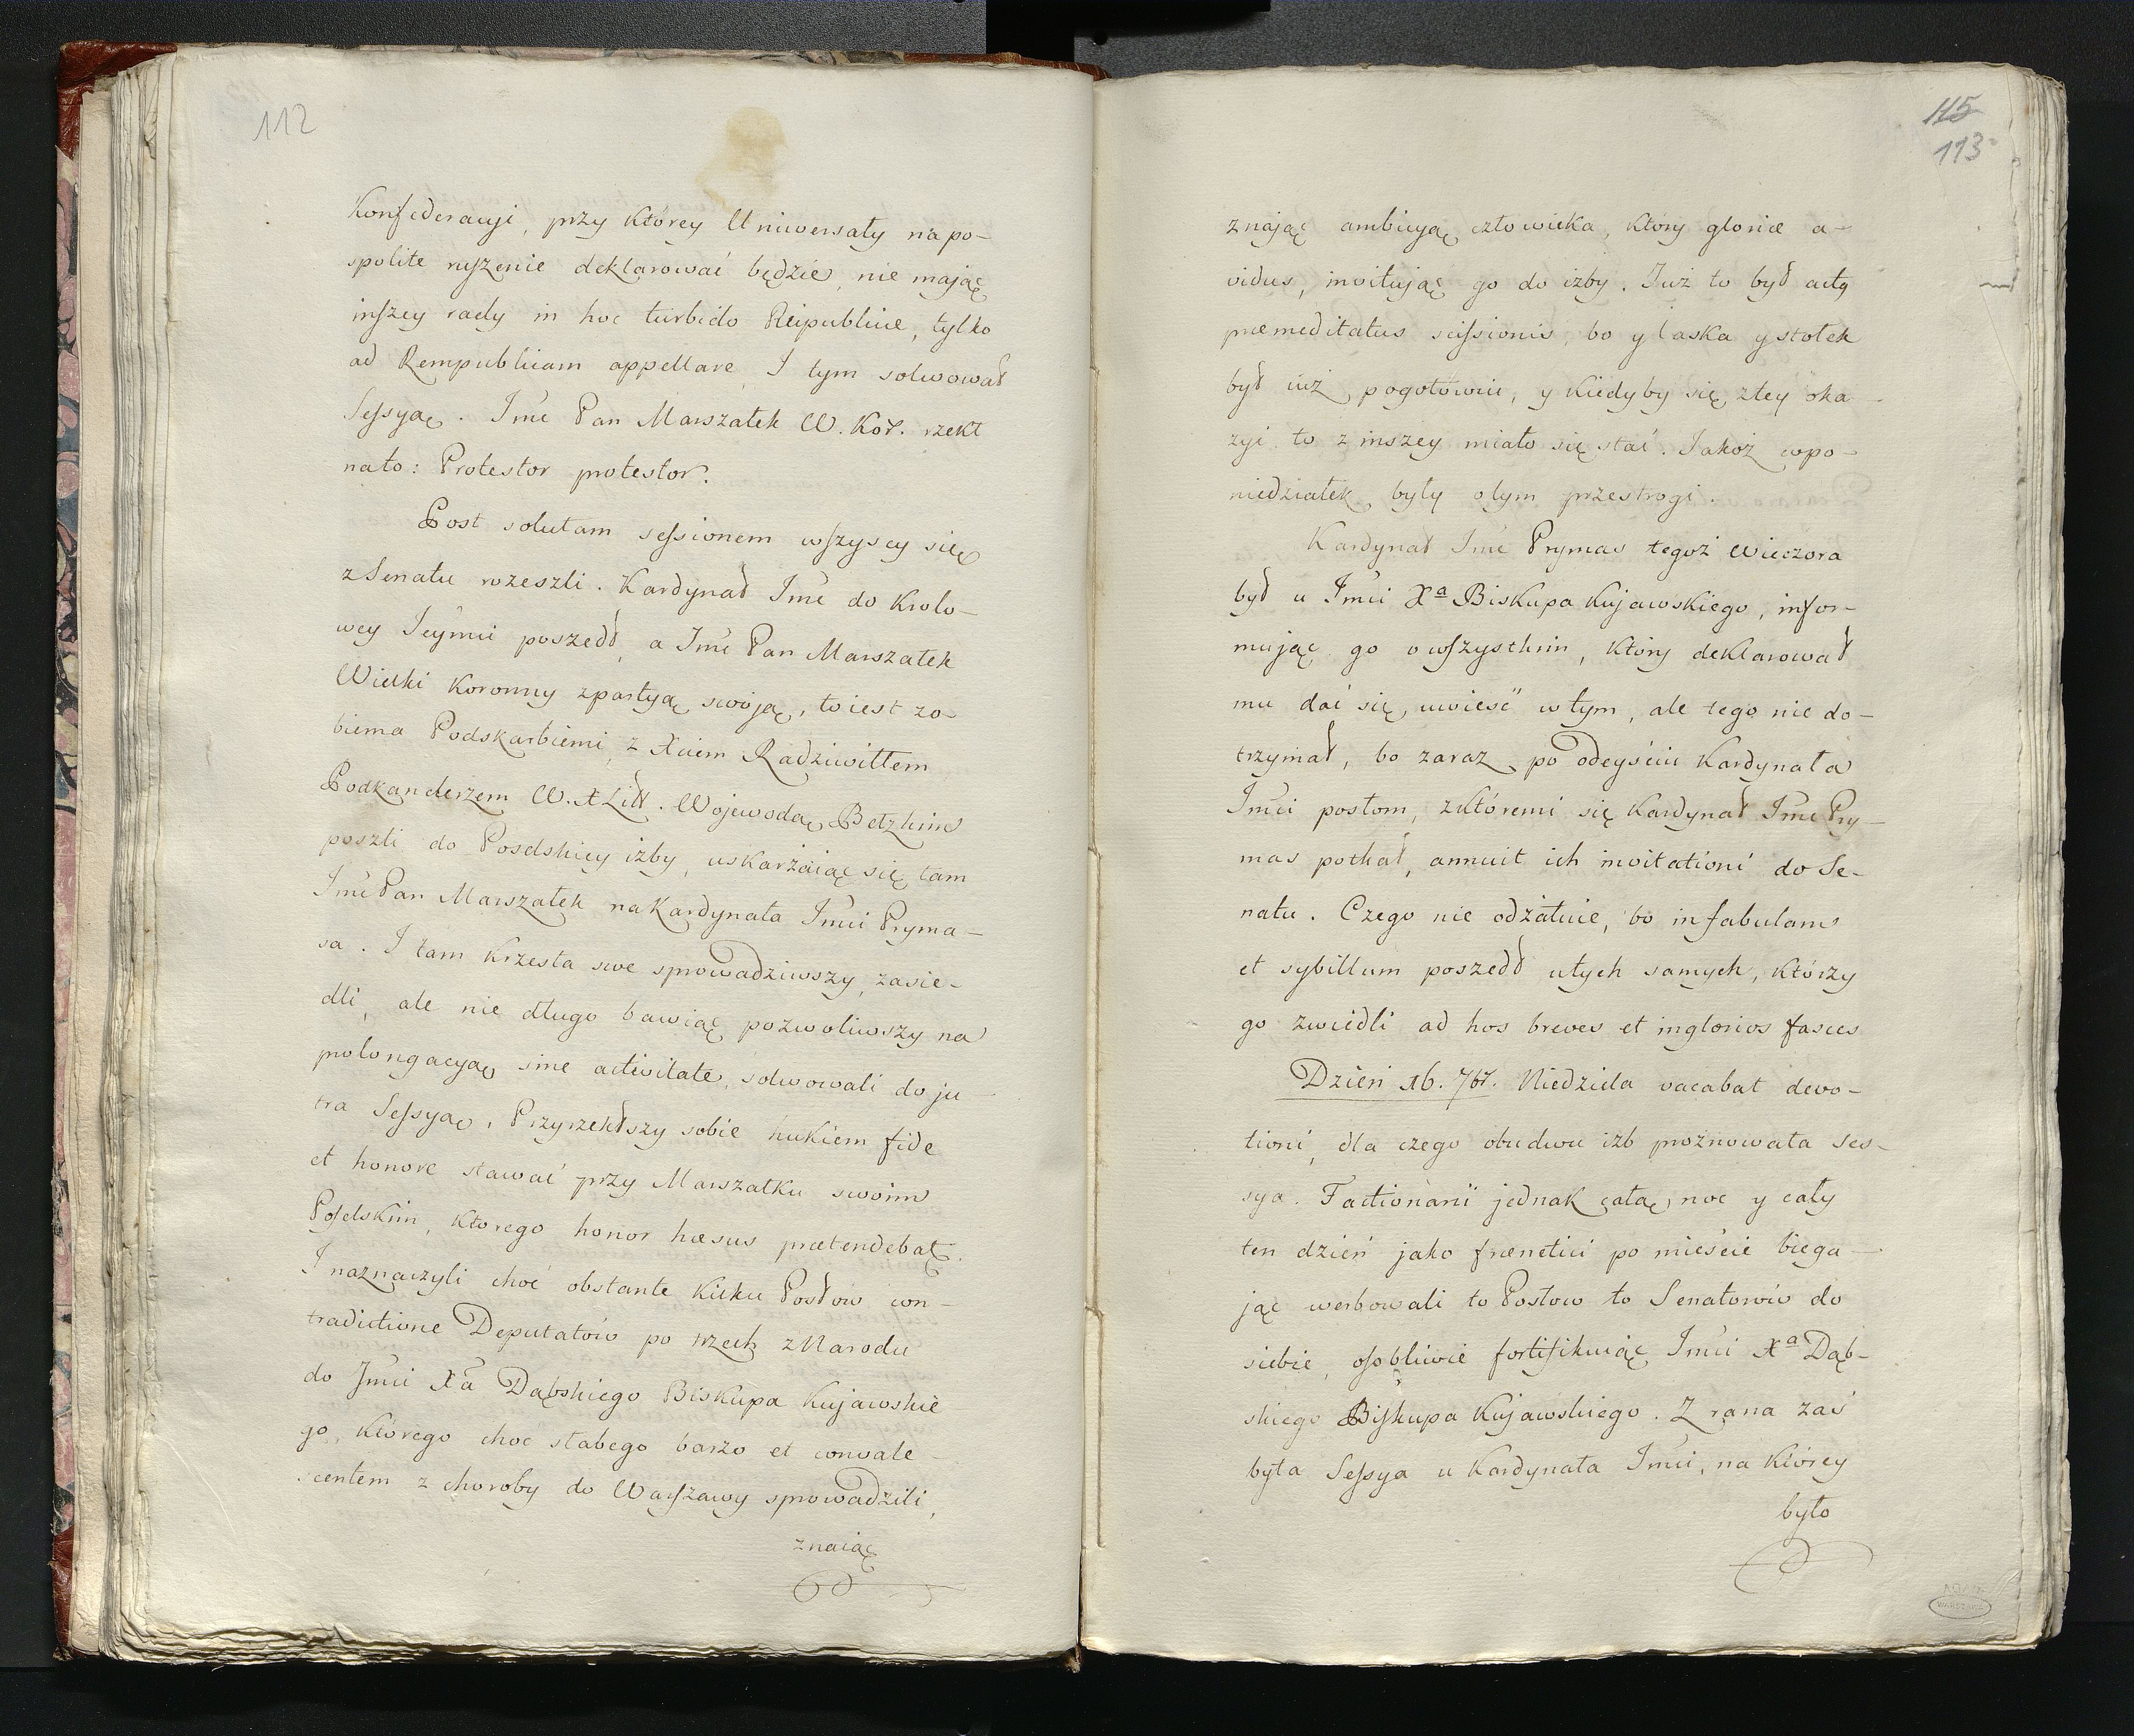 112
Konfederacyi, przy którey Uniwersały na po-
spolite ruszenie deklarować będzie, nie mając
inszey rady in hoc turbido Reipublicæ, tylko
ad Rempublicam appellare, I tym solwował
Sessyą. Jmć Pan Marszałek W. Kor. rzekł
nato: Protestor protestor.
Post solutam sessionem wszyscy się
z Senatu rozeszli. Kardynał Jmć do Krolo-
wey Jeymci poszedł, a Jmć Pan Marszałek
Wielki Koronny z partyą swoją, to iest z o-
biema Podskarbiemi, z Xciem Radziwiłłem
Podkanclerzem W. X Litt. Wojewodą Bełzkim
poszli do Poselskiey izby, uskarżaiąc się tam
Jmć Pan Marszałek na Kardynała Jmci Pryma-
sa. I tam Krzesła swe sprowadziwszy, zasie-
dli, ale nie długo bawiąc, pozwoliwszy na
prolongacyą sine activitate, solwowali do ju-
tra Sessyą, Przyrzekłszy sobie hukiem fide
et honore stawać przy Marszałku swoim
Poselskim, Ktorego honor læsus prætendebat.
I naznaczyli choć obstante Kilku Posłow con-
tradictione Deputatów po trzech z Narodu
do Jmci Xa Dąbskiego Biskupa Kujawskie
go, Ktorego choć słabego barzo et convale-
scentem z choroby do Warszawy sprowadzili,
znaiąc
115
113
znając ambicyą człowieka, Ktory gloriæ a-
vidus, invitując go do izby. Już to był actus
præmeditatus scissionis, bo y laska y stołek
był iuż pogotowiu, y Kiedyby się z tey oka-
zyi to z inszey miało się stać. Jakoż w po-
niedziałek były o tym przestrogi.
Kardynał Jmć Prymas tegoż wieczora
był u Jmci Xa Biskupa Kujawskiego, infor-
mując go o wszystkim, Ktory deklarował
mu dać się uwieść w tym, ale tego nie do-
trzymał, bo zaraz po odeyściu Kardynała
Jmci posłom, z Któremi się Kardynał Jmć Pry-
mas potkał, annuit ich invitationi do Se-
natu. Czego nie odżałuie, bo in fabulam
et sybillum poszedł u tych samych, Którzy
go zwiedli ad hos breves et inglorios fasces
Dzień 16. 7br. Niedziela vacabat devo-
tioni, dla czego obudwu izb prożnowała Ses-
sya. Factionarii jednak całą noc y cały
ten dzień jako frænetici po mieście biega-
jąc werbowali to Posłow to Senatorów do
siebie, osobliwie fortifikuiąc Jmci Xa Dąb-
skiego Biskupa Kujawskiego. Z rana zaś
była Sessya u Kardynała Jmci, na Którey
było
WARSZAWA